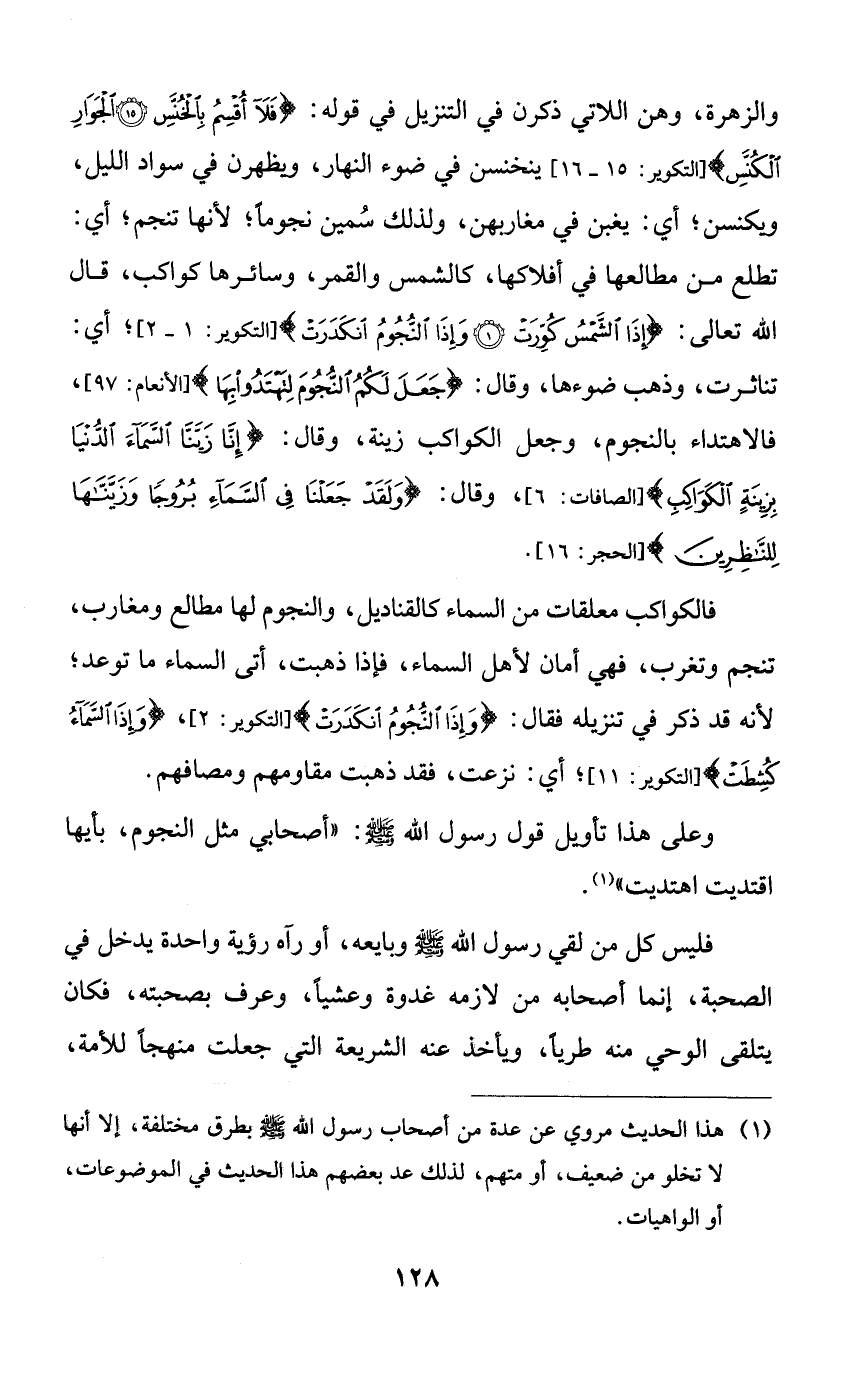 والزهرة، وهن اللاتي ذكرن في التنزيل في قوله: ﴿فَلَآ أُقْسِمُ بِٱلْخُنَّسِ ۝١٥ ٱلْجَوَارِ
ٱلْكُنَّسِ﴾[التكوير: ١٥ ـ ١٦] ينخنسن في ضوء النهار، ويظهرن في سواد الليل،
ويكنسن؛ أي: يغبن في مغاربهن، ولذلك سُمين نجوماً؛ لأنها تنجم؛ أي:
تطلع من مطالعها في أفلاكها، كالشمس والقمر، وسائرها كواكب، قال
الله تعالى: ﴿إِذَا ٱلشَّمْسُ كُوِّرَتْ ۝١ وَإِذَا ٱلنُّجُومُ ٱنكَدَرَتْ﴾[التكوير: ١ ـ ٢]؛ أي:
تناثرت، وذهب ضوءها، وقال: ﴿جَعَلَ لَكُمُ ٱلنُّجُومَ لِتَهْتَدُوا۟ بِهَا﴾[الأنعام: ٩٧]،
فالاهتداء بالنجوم، وجعل الكواكب زينة، وقال: ﴿إِنَّا زَيَّنَّا ٱلسَّمَآءَ ٱلدُّنْيَا
بِزِينَةٍ ٱلْكَوَاكِبِ﴾[الصافات: ٦]، وقال: ﴿وَلَقَدْ جَعَلْنَا فِى ٱلسَّمَآءِ بُرُوجًا وَزَيَّنَّٰهَا
لِلنَّٰظِرِينَ﴾[الحجر: ١٦].
فالكواكب معلقات من السماء كالقناديل، والنجوم لها مطالع ومغارب،
تنجم وتغرب، فهي أمان لأهل السماء، فإذا ذهبت، أتى السماء ما توعد؛
لأنه قد ذكر في تنزيله فقال: ﴿وَإِذَا ٱلنُّجُومُ ٱنكَدَرَتْ﴾[التكوير: ٢]، ﴿وَإِذَا ٱلسَّمَآءُ
كُشِطَتْ﴾[التكوير: ١١]؛ أي: نزعت، فقد ذهبت مقاومهم ومصافهم.
وعلى هذا تأويل قول رسول الله ﷺ: «أصحابي مثل النجوم، بأيها
اقتديت اهتديت»(١).
فليس كل من لقي رسول الله ﷺ وبايعه، أو رآه رؤية واحدة يدخل في
الصحبة، إنما أصحابه من لازمه غدوة وعشياً، وعرف بصحبته، فكان
يتلقى الوحي منه طرياً، ويأخذ عنه الشريعة التي جعلت منهجاً للأمة،
(١) هذا الحديث مروي عن عدة من أصحاب رسول الله ﷺ بطرق مختلفة، إلا أنها
لا تخلو من ضعيف، أو متهم، لذلك عد بعضهم هذا الحديث في الموضوعات،
أو الواهيات.
١٢٨